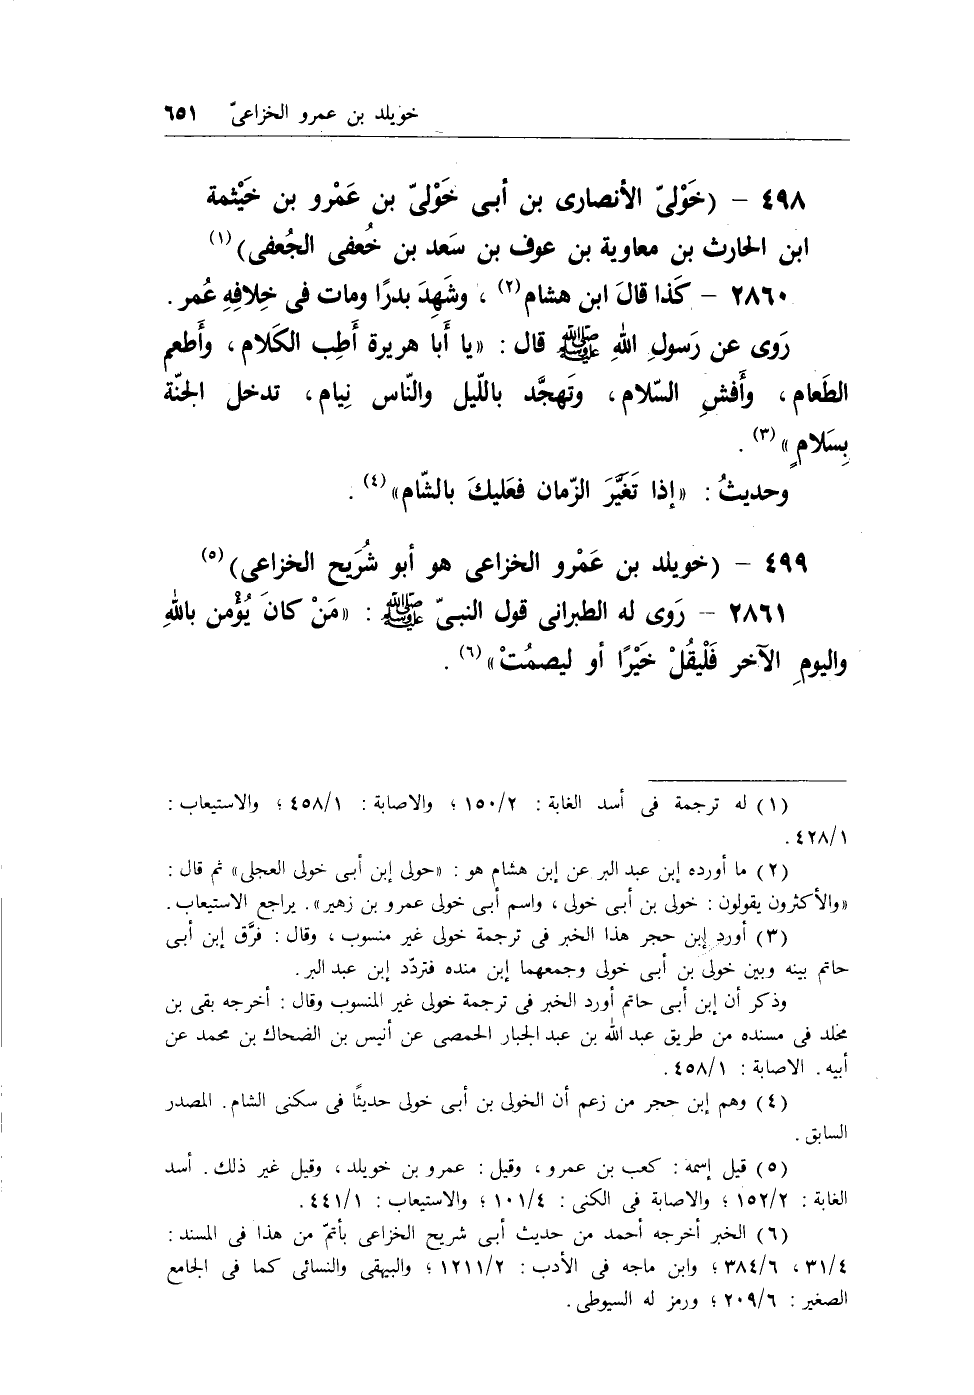 خويلد بن عمرو الخزاعىّ ٦٥١
٤٩٨ – (خَوْلىّ الأنصارى بن أبى خَوْلىّ بن عَمْرو بن خَيْثمة
ابن الحارث بن معاوية بن عوف بن سَعد بن خُعفى الجُعفى)(١)
٢٨٦٠ – كَذا قالَ ابن هشام(٢) ، وشَهِدَ بدرًا ومات فى خِلافِهِ عُمر .
رَوى عن رَسولِ اللهِ ﷺ قال : «يا أَبا هريرة أَطِب الكَلام ، وأَطعم
الطَعام ، وأَفشِ السّلام ، وتَهجَّد باللّيل والنّاس نِيام ، تدخل الجنّة
بِسَلامٍ»(٣) .
وحديثُ : «إذا تَغَيَّرَ الزّمان فعَليكَ بالشّام»(٤) .
٤٩٩ – (خويلد بن عَمْرو الخزاعى هو أبو شُرَيح الخزاعى)(٥)
٢٨٦١ – رَوى له الطبرانى قول النبىّ ﷺ : «مَنْ كانَ يُؤْمن باللهِ
واليومِ الآخر فَلْيقُلْ خَيْرًا أو ليصمُتْ»(٦) .
(١) له ترجمة فى أسد الغابة : ١٥٠/٢ ؛ والاصابة : ٤٥٨/١ ؛ والاستيعاب :
٤٢٨/١ .
(٢) ما أورده إبن عبد البر عن إبن هشام هو : «حولى إبن أبى خولى العجلى» ثم قال :
«والأكثرون يقولون : خولى بن أبى خولى ، واسم أبى خولى عمرو بن زهير» . يراجع الاستيعاب .
(٣) أورد إبن حجر هذا الخبر فى ترجمة خولى غير منسوب ، وقال : فرَّق إبن أبى
حاتم بينه وبين خولى بن أبى خولى وجمعهما إبن منده فتردّد إبن عبد البر .
وذكر أن إبن أبى حاتم أورد الخبر فى ترجمة خولى غير المنسوب وقال : أخرجه بقى بن
مخلد فى مسنده من طريق عبد الله بن عبد الجبار الحمصى عن أنيس بن الضحاك بن محمد عن
أبيه . الاصابة : ٤٥٨/١ .
(٤) وهم إبن حجر من زعم أن الخولى بن أبى خولى حديثًا فى سكنى الشام . المصدر
السابق .
(٥) قيل إسمه : كعب بن عمرو ، وقيل : عمرو بن خويلد ، وقيل غير ذلك . أسد
الغابة : ١٥٢/٢ ؛ والاصابة فى الكنى : ١٠١/٤ ؛ والاستيعاب : ٤٤١/١ .
(٦) الخبر أخرجه أحمد من حديث أبى شريح الخزاعى بأتمّ من هذا فى المسند :
٣١/٤ ، ٣٨٤/٦ ؛ وابن ماجه فى الأدب : ١٢١١/٢ ؛ والبيهقى والنسائى كما فى الجامع
الصغير : ٢٠٩/٦ ؛ ورمز له السيوطى .